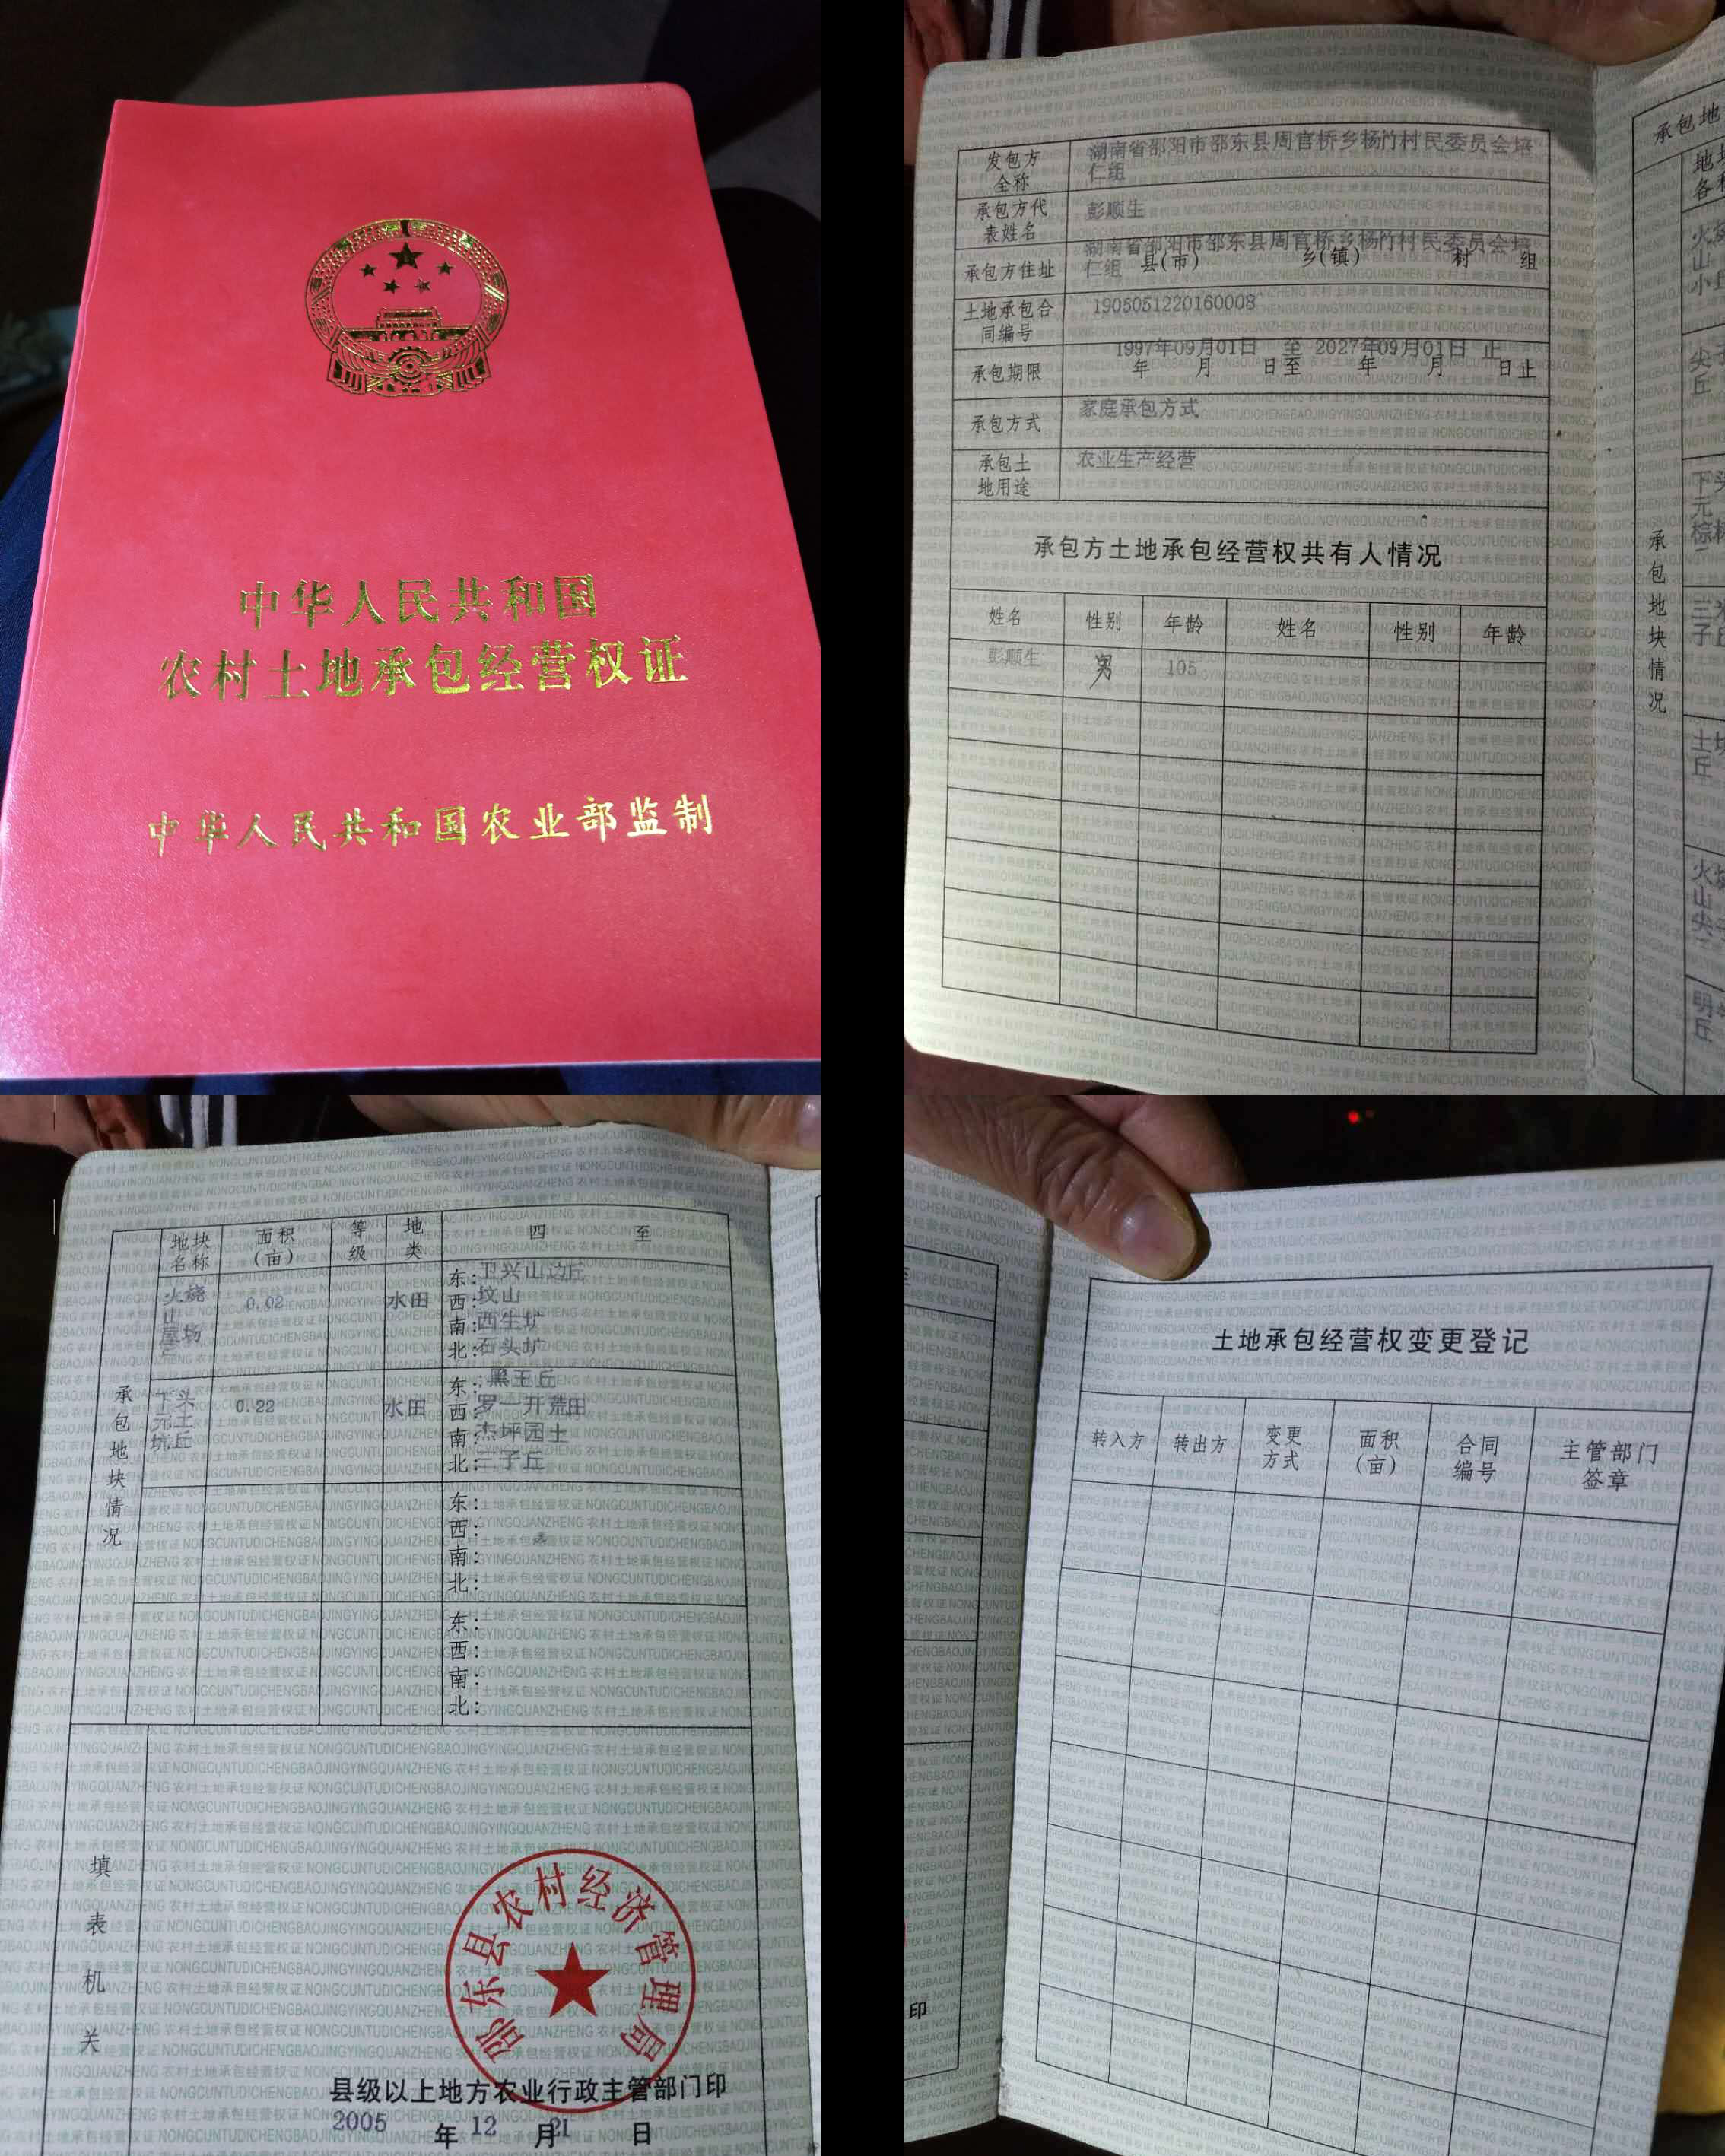 中华人民共和国
农村土地承包经营权证
中华人民共和国农业部监制
发包方全称 湖南省邵阳市邵东县周官桥乡杨竹村民委员会培仁组
承包方代表姓名 彭顺生
承包方住址 湖南省邵阳市邵东县周官桥乡杨竹村民委员会培仁组 县(市) 乡(镇) 村 组
土地承包合同编号 1905051220160008
承包期限 1997年09月01日 至 2027年09月01日 止
年 月 日至 年 月 日止
承包方式 家庭承包方式
承包土地用途 农业生产经营
承包方土地承包经营权共有人情况
姓名 性别 年龄 姓名 性别 年龄
彭顺生 男 105
承包地
承包地块情况
承包地块情况
地块名称 面积(亩) 等级 地类 四至
火烧山屋场 0.02 水田
东:卫兴山边丘
西:坟山
南:西生圹
北:石头圹
下头元土坑丘 0.22 水田
东:黑王丘
西:罗一开荒田
南:杰坪园土
北:三子丘
东:
西:
南:
北:
东:
西:
南:
北:
填表机关
邵东县农村经济管理局
县级以上地方农业行政主管部门印
2005年12月21日
印
土地承包经营权变更登记
转入方 转出方 变更方式 面积(亩) 合同编号 主管部门签章